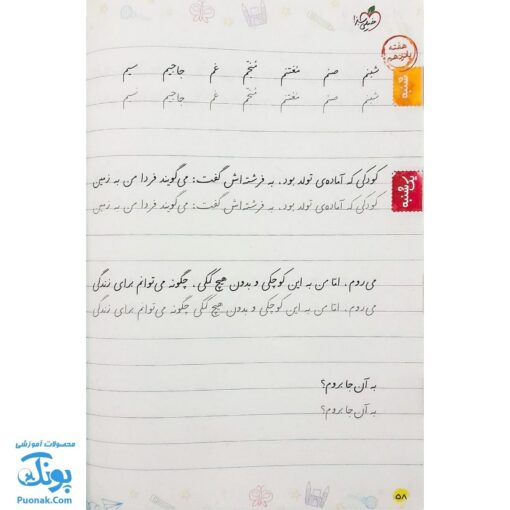 خیلی سبز
هفته
پانزدهم
شنبه
شبنم صنم مغتنم منجم غم جاجیم سیم
شبنم صنم مغتنم منجم غم جاجیم سیم
یک‌شنبه
کودکی که آماده‌ی تولد بود، به فرشته‌اش گفت: می‌گویند فردا من به زمین
کودکی که آماده‌ی تولد بود، به فرشته‌اش گفت: می‌گویند فردا من به زمین
می‌روم، امّا من به این کوچکی و بدون هیچ کمکی، چگونه می‌توانم برای زندگی
می‌روم، امّا من به این کوچکی و بدون هیچ کمکی چگونه می‌توانم برای زندگی
به آن جا بروم؟
به آن جا بروم؟
۵۸
محصولات آموزشی
پونک
Puonak.com